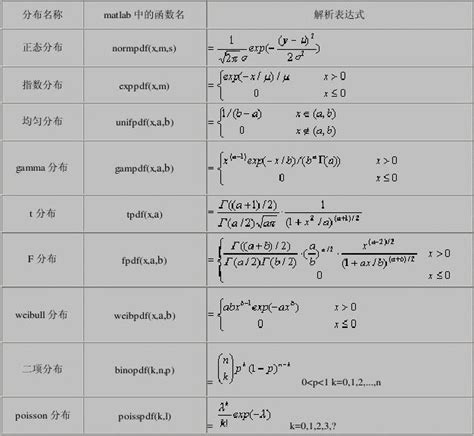 分布名称 matlab 中的函数名 解析表达式
正态分布 normpdf(x,m,s) = 1/(√(2π) σ) exp(-(y-μ)²/(2σ²))
指数分布 exppdf(x,m) = { exp(-x/μ)/μ x>0
0 x≤0
均匀分布 unifpdf(x,a,b) = { 1/(b-a) x∈(a,b)
0 x∉(a,b)
gamma 分布 gampdf(x,a,b) = { x^(a-1)exp(-x/b)/(b^a Γ(a)) x>0
0 x≤0
t 分布 tpdf(x,a) = Γ((a+1)/2)/(Γ(a/2)√(aπ)) · 1/(1+x²/a)^((a+1)/2)
F 分布 fpdf(x,a,b) = { Γ((a+b)/2)/(Γ(a/2)Γ(b/2)) · (a/b)^(a/2) · x^((a-2)/2)/(1+ax/b)^((a+b)/2) x>0
0 x≤0
weibull 分布 weibpdf(x,a,b) = { abx^(b-1)exp(-ax^b) x>0
0 x≤0
二项分布 binopdf(k,n,p) = (n k) p^k (1-p)^(n-k) 0<p<1 k=0,1,2,...,n
poisson 分布 poisspdf(k,l) = λ^k/k! exp(-λ) k=0,1,2,3,?